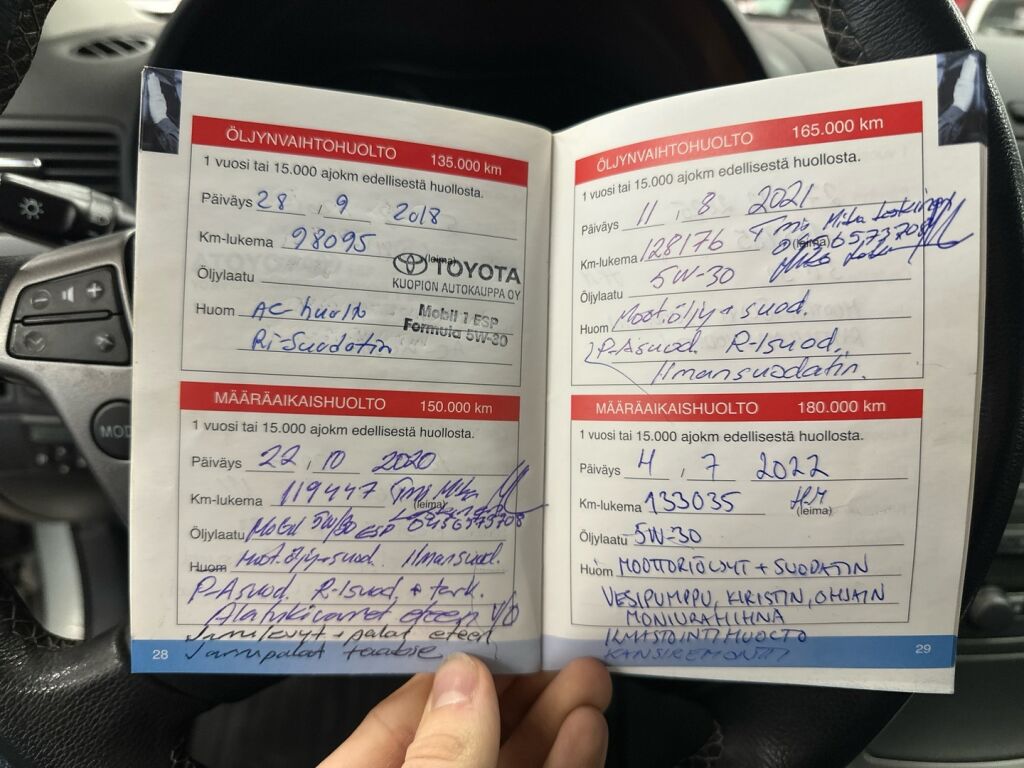 ÖLJYNVAIHTOHUOLTO 135.000 km
1 vuosi tai 15.000 ajokm edellisestä huollosta.
Päiväys 28 , 9 2018
Km-lukema 98095
(leima)
TOYOTA
KUOPION AUTOKAUPPA OY
Öljylaatu
Mobil 1 ESP
Formula 5W-30
Huom AC huolto
Ri-Suodatin
MÄÄRÄAIKAISHUOLTO 150.000 km
1 vuosi tai 15.000 ajokm edellisestä huollosta.
Päiväys 22 , 10 2020
Km-lukema 119447 Tmi Mika
(leima)
Öljylaatu Mobil 5W/30 ESP
Huom Moot.öljy+suod. Ilmansuod.
P-Asuod. R-Isuod, + tark.
Alatukivarret eteen V/O
Jarrulevyt + palat eteen
Jarrupalat taakse
28
ÖLJYNVAIHTOHUOLTO 165.000 km
1 vuosi tai 15.000 ajokm edellisestä huollosta.
Päiväys 11 , 8 2021
Km-lukema 128176 Tmi Mika
(leima)
Öljylaatu 5W-30
Huom Moot.öljy + suod.
P-Asuod. R-Isuod,
Ilmansuodatin.
MÄÄRÄAIKAISHUOLTO 180.000 km
1 vuosi tai 15.000 ajokm edellisestä huollosta.
Päiväys 4 , 7 2022
Km-lukema 133035
(leima)
Öljylaatu 5W-30
Huom MOOTTORIÖLJYT + SUODATIN
VESIPUMPPU, KIRISTIN, OHJAIN
MONIURAHIHNA
ILMASTOINTIHUOLTO
KANSIREMONTTI
29
MOD